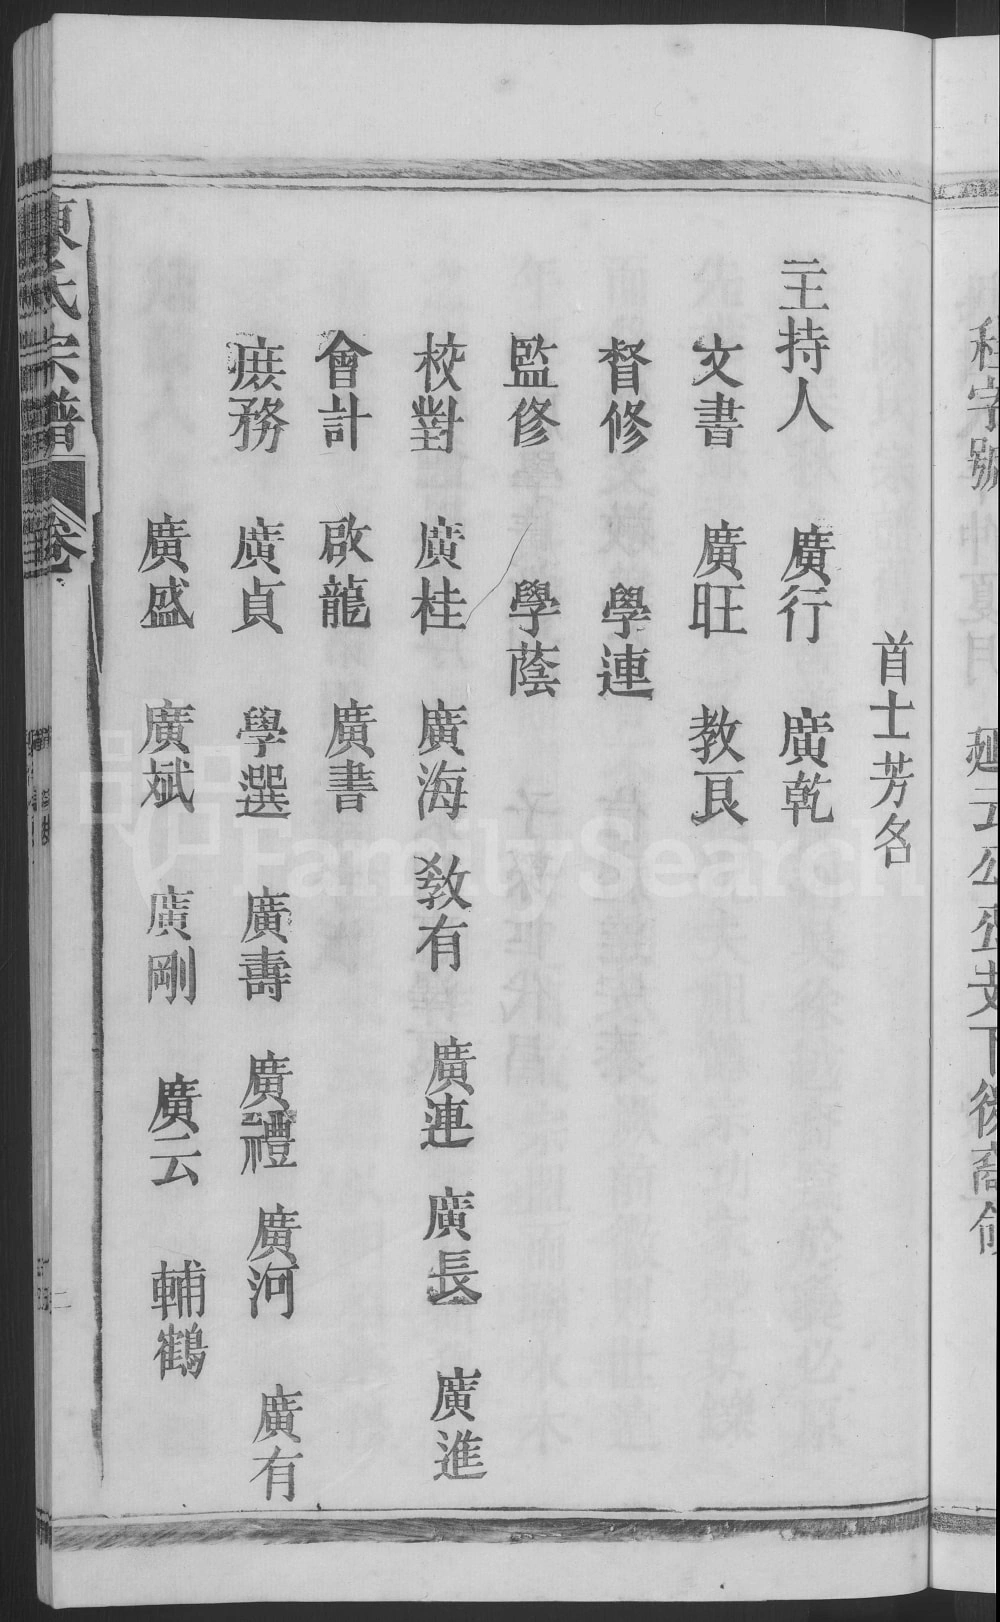 首士芳名
主持人 廣行 廣乾
文書 廣旺 教艮
督修 學連
監修 學蔭
校對 廣桂 廣海 教有 廣連 廣長 廣進
會計 啟龍 廣書
庶務 廣貞 學選 廣壽 廣禮 廣河 廣有
廣盛 廣斌 廣剛 廣云 輔鶴
陳氏宗譜 卷
二
FamilySearch